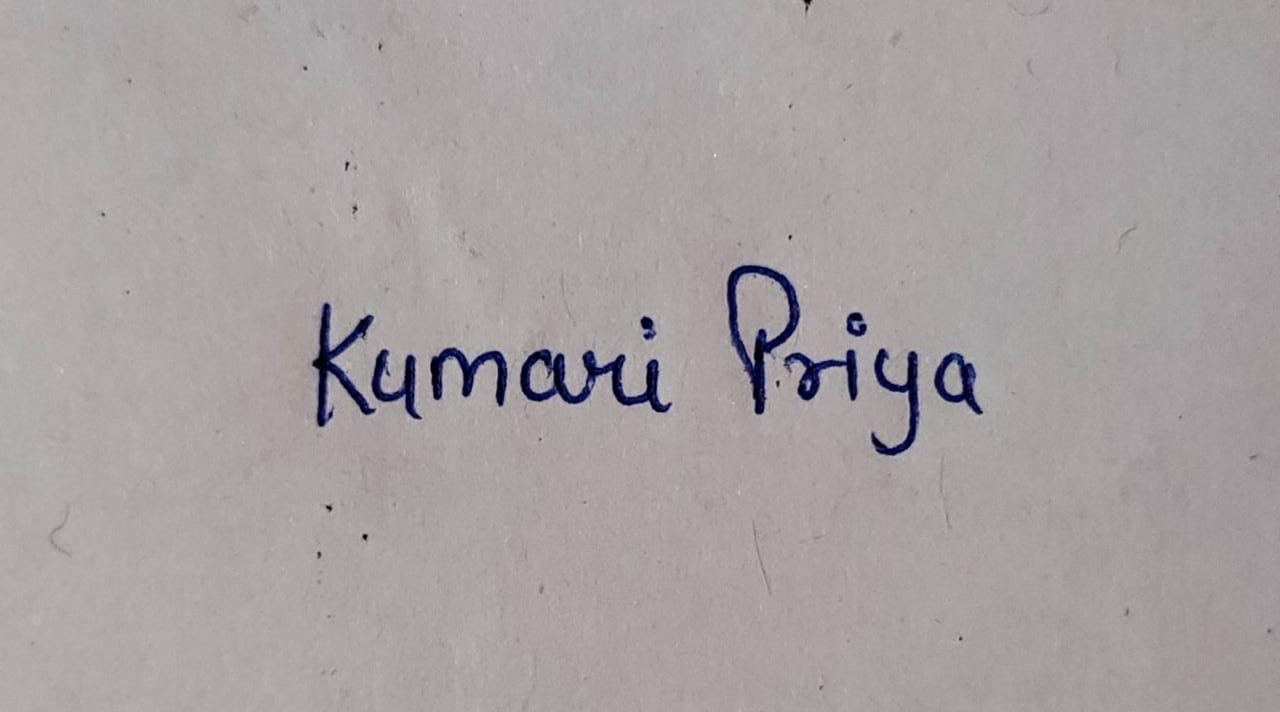 Kumari Priya